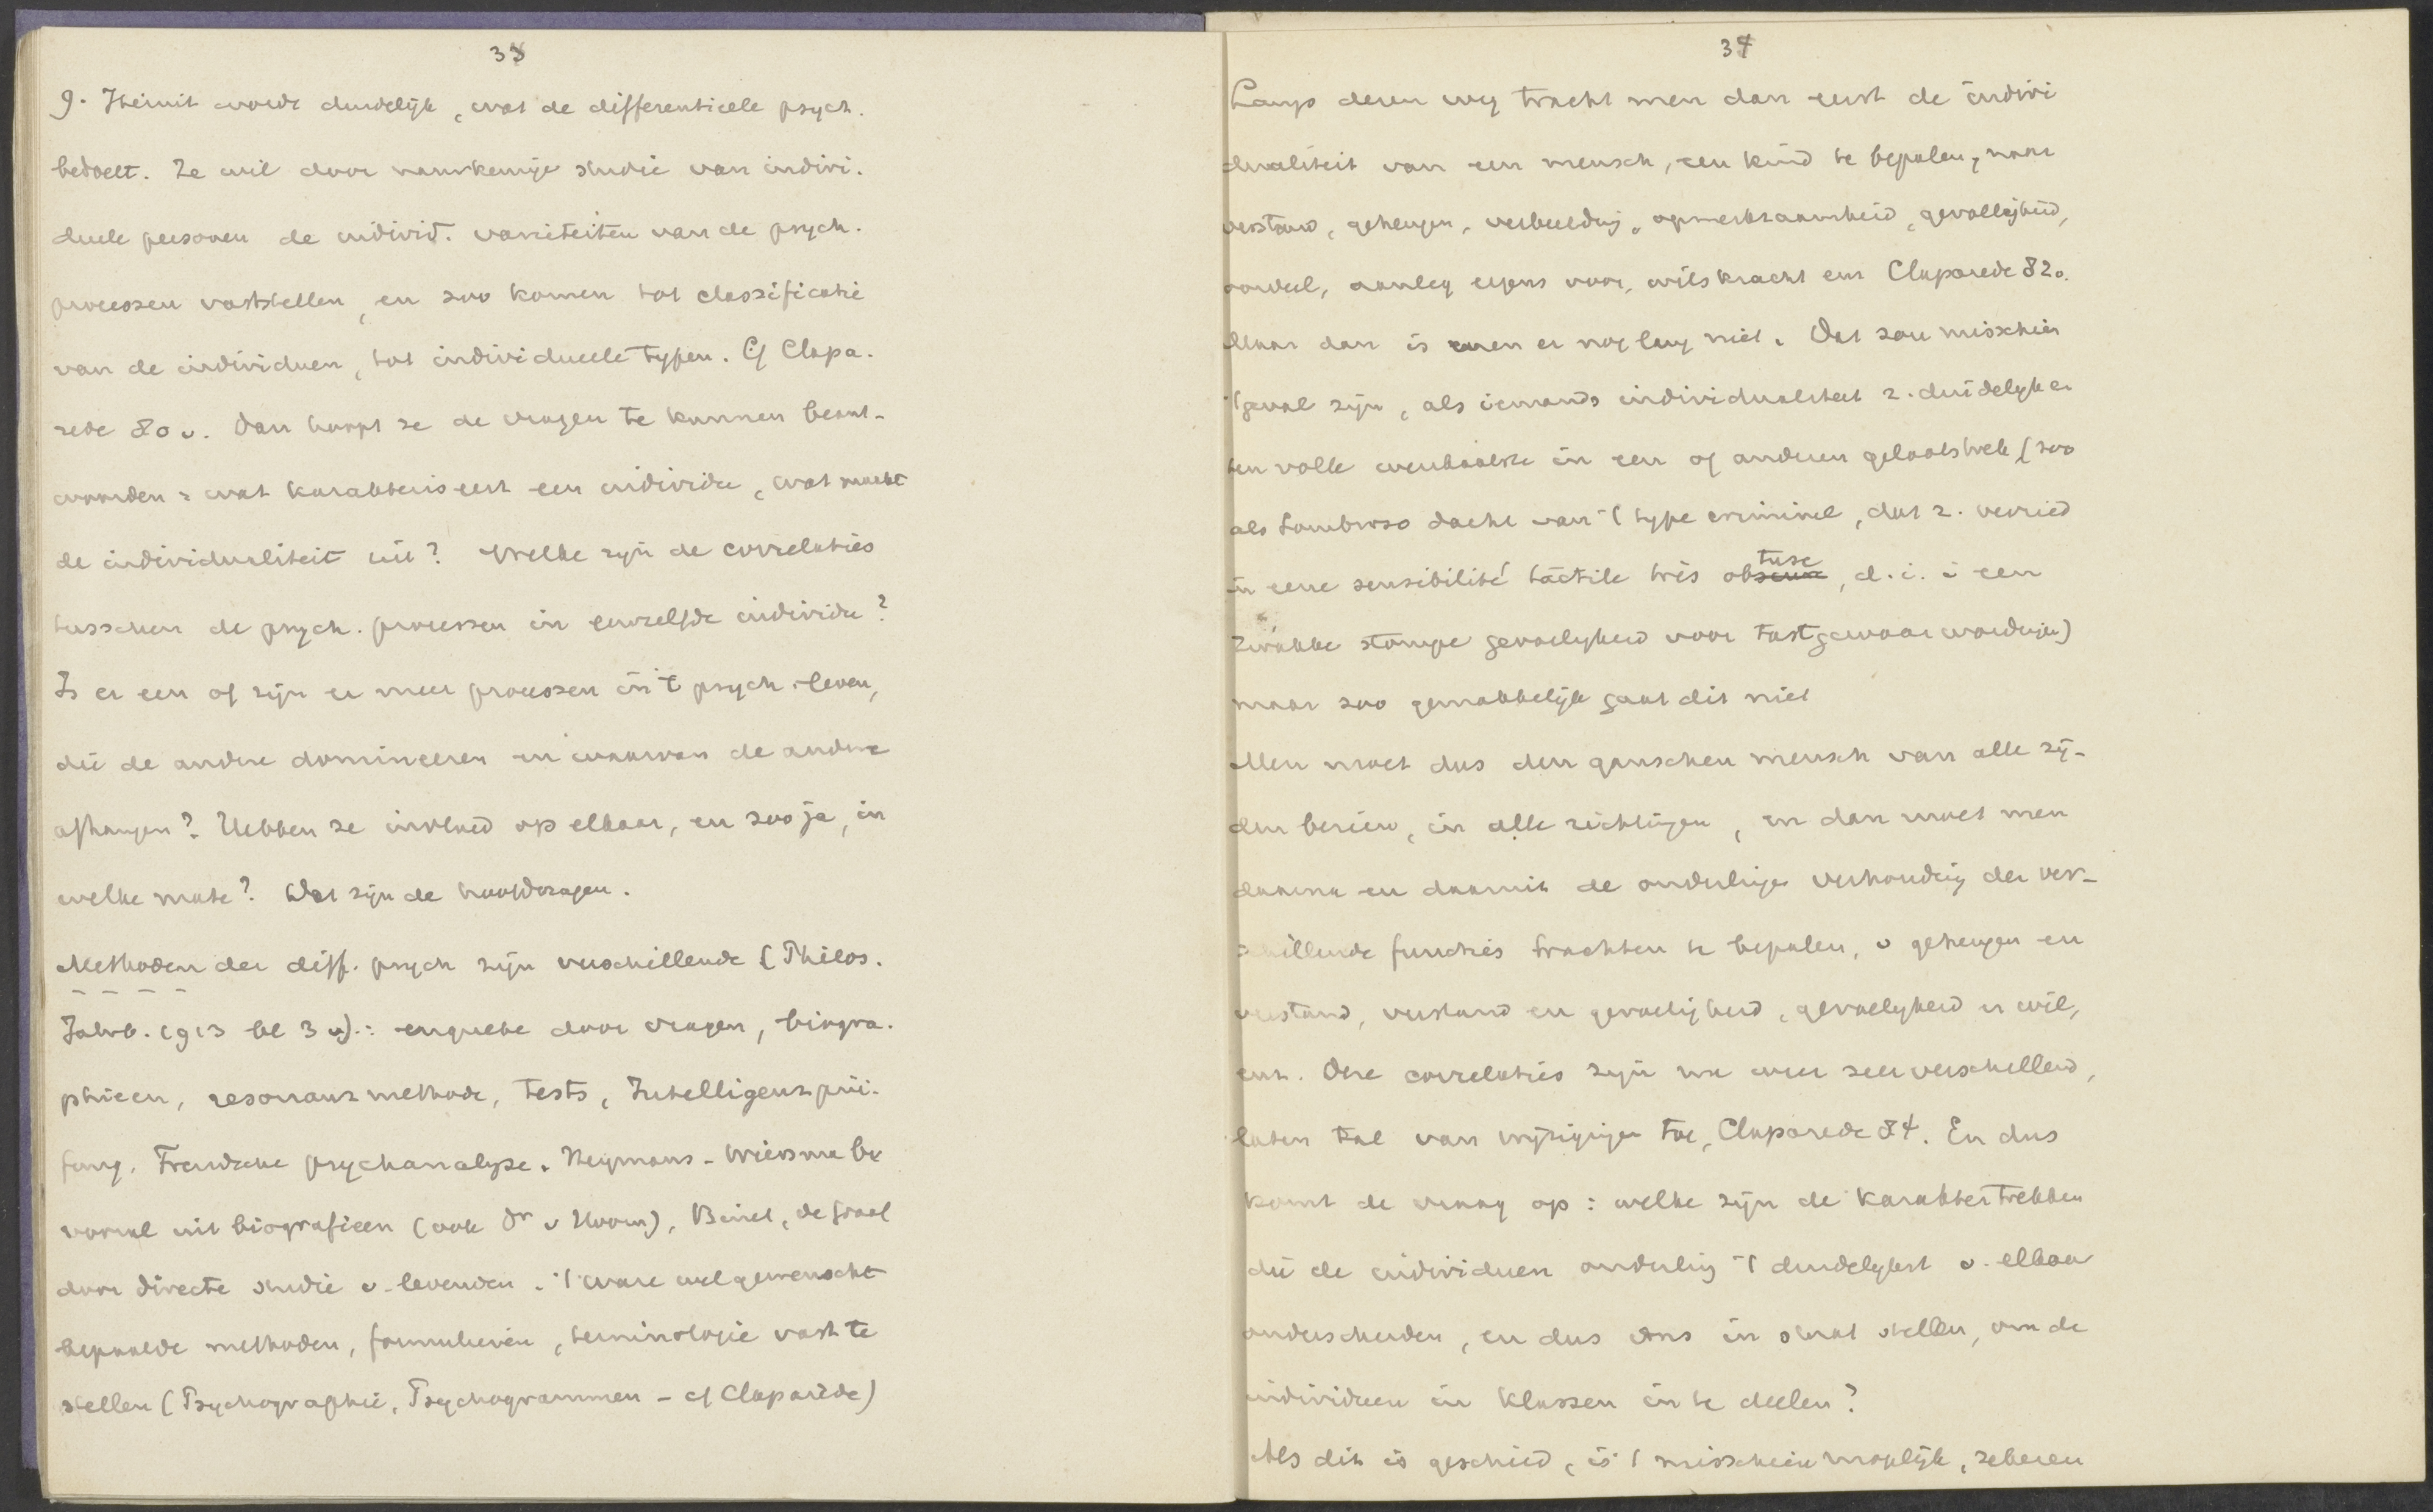 33
9. Hieruit wordt duidelijk, wat de differentieele psych.
bedoelt. Ze wil door nauwkeurige studie van indivi.
dueele personen de individ. varieteiten van de psych.
processen vaststellen, en zoo komen tot classificatie
van de individuen, tot individueele typen. Cf Clapa.
rede 80 v. Dan hoopt ze de vragen te kunnen beant-
woorden: wat karakteriseert een individu, wat maakt
de individualiteit uit? Welke zijn de correlaties
tusschen de psych. processen in eenzelfde individu?
Is er een of zijn er meer processen in 't psych. leven,
die de andere domineeren en waarvan de andere
afhangen? Hebben ze invloed op elkaar, en zoo ja, in
welke mate? Dat zijn de hoofdvragen.
Methoden der diff. psych zijn verschillende (Philos.
Jahrb. 1913 bl 3 v).: enquete door vragen, biogra.
phieen, resonanzmethode, tests, Intelligenzprü.
fung, Freudsche psychanalyse. Heymans - Wiersma be
vooral uit biografieen (ook Dr v Hoorn), Binet, de Graaf
door directe studie v. levenden. 't ware wel gewenscht
bepaalde methoden, formulieren, terminologie vast te
stellen (Psychographie, Psychogrammen - cf Claparède)
34
Langs dezen weg tracht men dan eerst de indivi
dualiteit van een mensch, een kind te bepalen, naar
verstand, geheugen, verbeelding, opmerkzaamheid, gevoeligheid,
oordeel, aanleg ergens voor, wilskracht enz Claparede 82.
Maar dan is men er nog lang niet. Dat zou misschien
't geval zijn, als iemands individualiteit z. duidelijk en
ten volle openbaarde in een of anderen gelaatstrek (zoo
als Lombroso dacht van 't type criminel, dat z. verried
in eene sensibilité tactile très obtuse, d.i. i een
zwakke stompe gevoeligheid voor tastgewaarwordingen)
maar zoo gemakkelijk gaat dit niet
Men moet dus den ganschen mensch van alle zij-
den bezien, in alle richtingen, en dan moet men
daarna en daaruit de onderlinge verhouding der ver-
schillende functies trachten te bepalen, v geheugen en
verstand, verstand en gevoeligheid, gevoeligheid en wil,
enz. Deze correlaties zijn nu weer zeer verschillend,
laten tal van wijzigingen toe, Claparede 84. En dus
komt de vraag op: welke zijn de karaktertrekken
die de individuen onderling 't duidelijkst v. elkaar
onderscheiden, en dus ons in staat stellen, om de
individuen in klassen in te deelen?
Als dit is geschied, is 't misschien mogelijk, zekeren